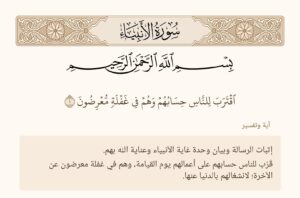 سُورَةُ الْأَنبِيَاءِ
بِسْمِ اللَّهِ الرَّحْمَٰنِ الرَّحِيمِ
اقْتَرَبَ لِلنَّاسِ حِسَابُهُمْ وَهُمْ فِي غَفْلَةٍ مُّعْرِضُونَ ١
آية وتفسير
إثبات الرسالة وبيان وحدة غاية الأنبياء وعناية الله بهم.
قرُب للناس حسابهم على أعمالهم يوم القيامة، وهم في غفلة معرضون عن
الآخرة؛ لانشغالهم بالدنيا عنها.